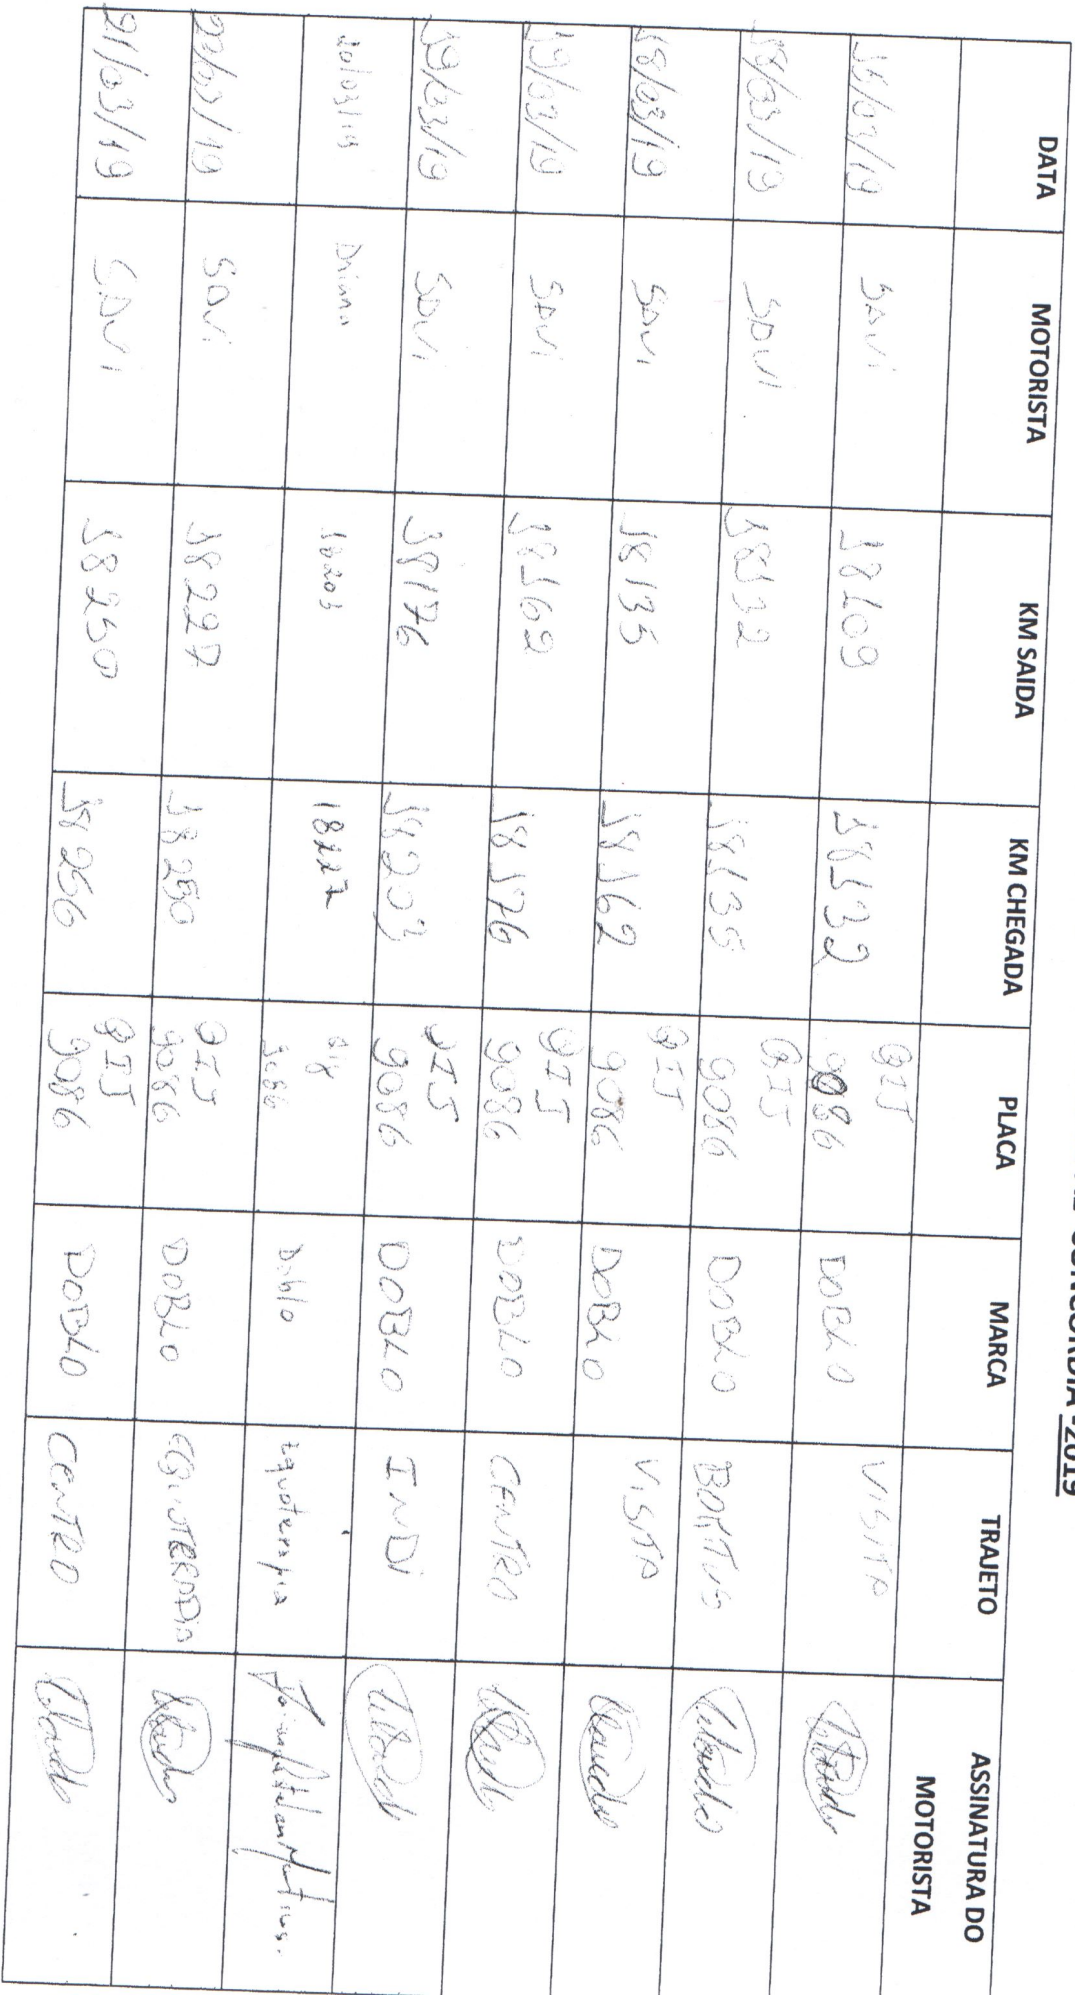 CONCORDIA -2019
DATA MOTORISTA KM SAIDA KM CHEGADA PLACA MARCA TRAJETO ASSINATURA DO MOTORISTA
/03/19 SAVI 18109 18132 QIJ 9086 DOBLO VISITA
18/03/19 SAVI 18132 18135 QIJ 9086 DOBLO
18/03/19 SAVI 18135 18162 QIJ 9086 DOBLO VISITA
19/03/19 SAVI 18162 18176 QIJ 9086 DOBLO CENTRO
19/03/19 SAVI 18176 18203 QIJ 9086 DOBLO INDI
20/03/19 18203 18227 9086 Doblo equoterapia
/03/19 SAVI 18227 18250 QIJ 9086 DOBLO EQUOTERAPIA
21/03/19 SAVI 18250 18256 QIJ 9086 DOBLO CENTRO